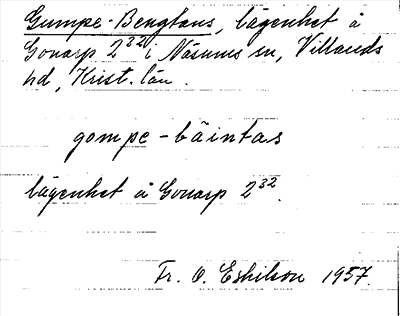 Gumpe-Bengtans, lägenhet å
Gonarp 2³² i Näsums sn, Villands
hd, Krist. län.
gompe-bäintas
lägenhet å Gonarp 2³².
Fr. O. Eskilson 1957.